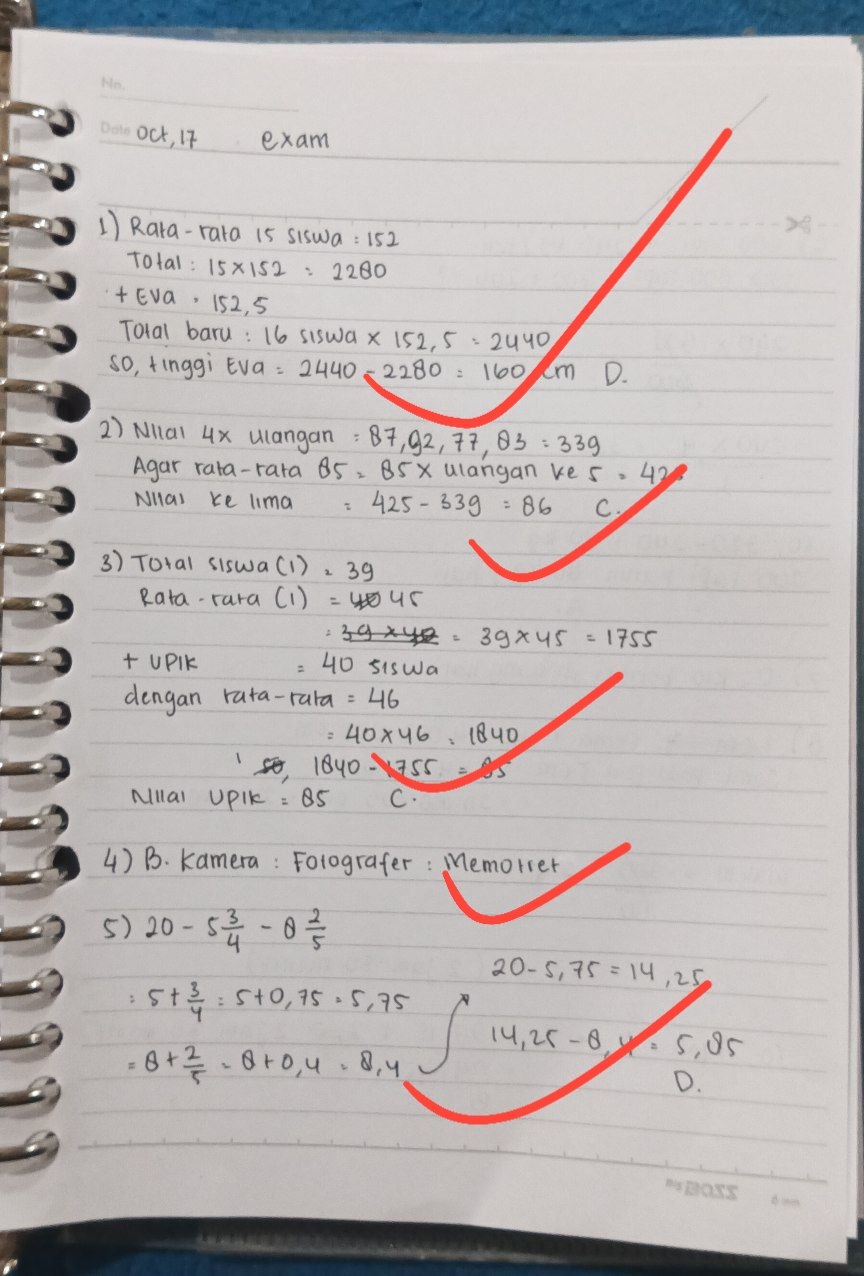 No.
Date Oct, 17 exam
1) Rata-rata 15 siswa : 152
Total : 15 x 152 = 2280
+ Eva = 152,5
Total baru : 16 siswa x 152,5 = 2440
so, tinggi Eva = 2440 - 2280 = 160 cm D.
2) Nilai 4x ulangan = 87, 92, 77, 83 = 339
Agar rata-rata 85 = 85 x ulangan ke 5 = 425
Nilai ke lima = 425 - 339 = 86 C.
3) Total siswa (1) = 39
Rata-rata (1) = 40 45
= 39 x 40 = 39 x 45 = 1755
+ UPIK = 40 siswa
dengan rata-rata = 46
= 40 x 46 = 1840
so, 1840 - 1755 = 85
Nilai UPIK = 85 C.
4) B. Kamera : Fotografer : Memotret
5) 20 - 5 3/4 - 8 2/5
20 - 5,75 = 14,25
= 5 + 3/4 = 5 + 0,75 = 5,75
14,25 - 8,4 = 5,85
= 8 + 2/5 = 8 + 0,4 = 8,4
D.